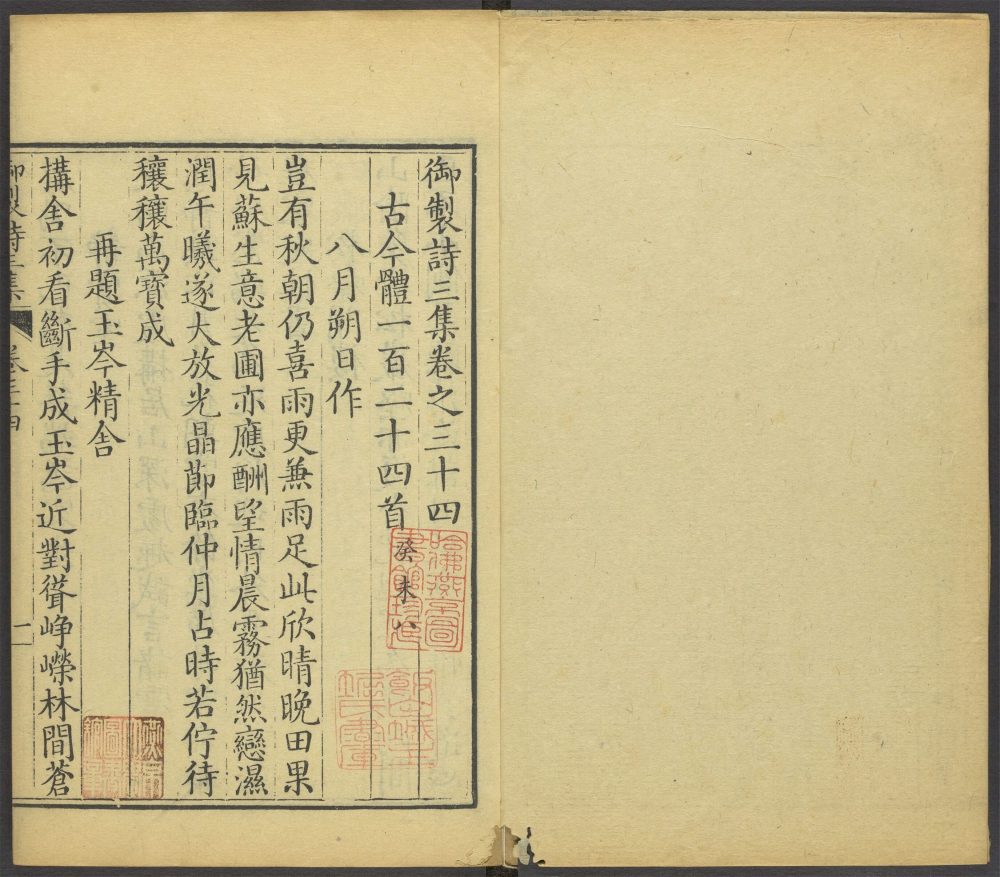 御製詩三集卷之三十四
古今體一百二十四首癸未八
八月朔日作
豈有秋朝仍喜雨更兼雨足此欣晴晚田果
見蘇生意老圃亦應酬望情晨霧猶然戀濕
潤午曦遂大放光晶節臨仲月占時若佇待
穰穰萬寶成
再題玉岑精舍
構舍初看斷手成玉岑近對聳崢嶸林間蒼
御製詩三集 卷三十四 一
哈佛燕京圖書館珍藏